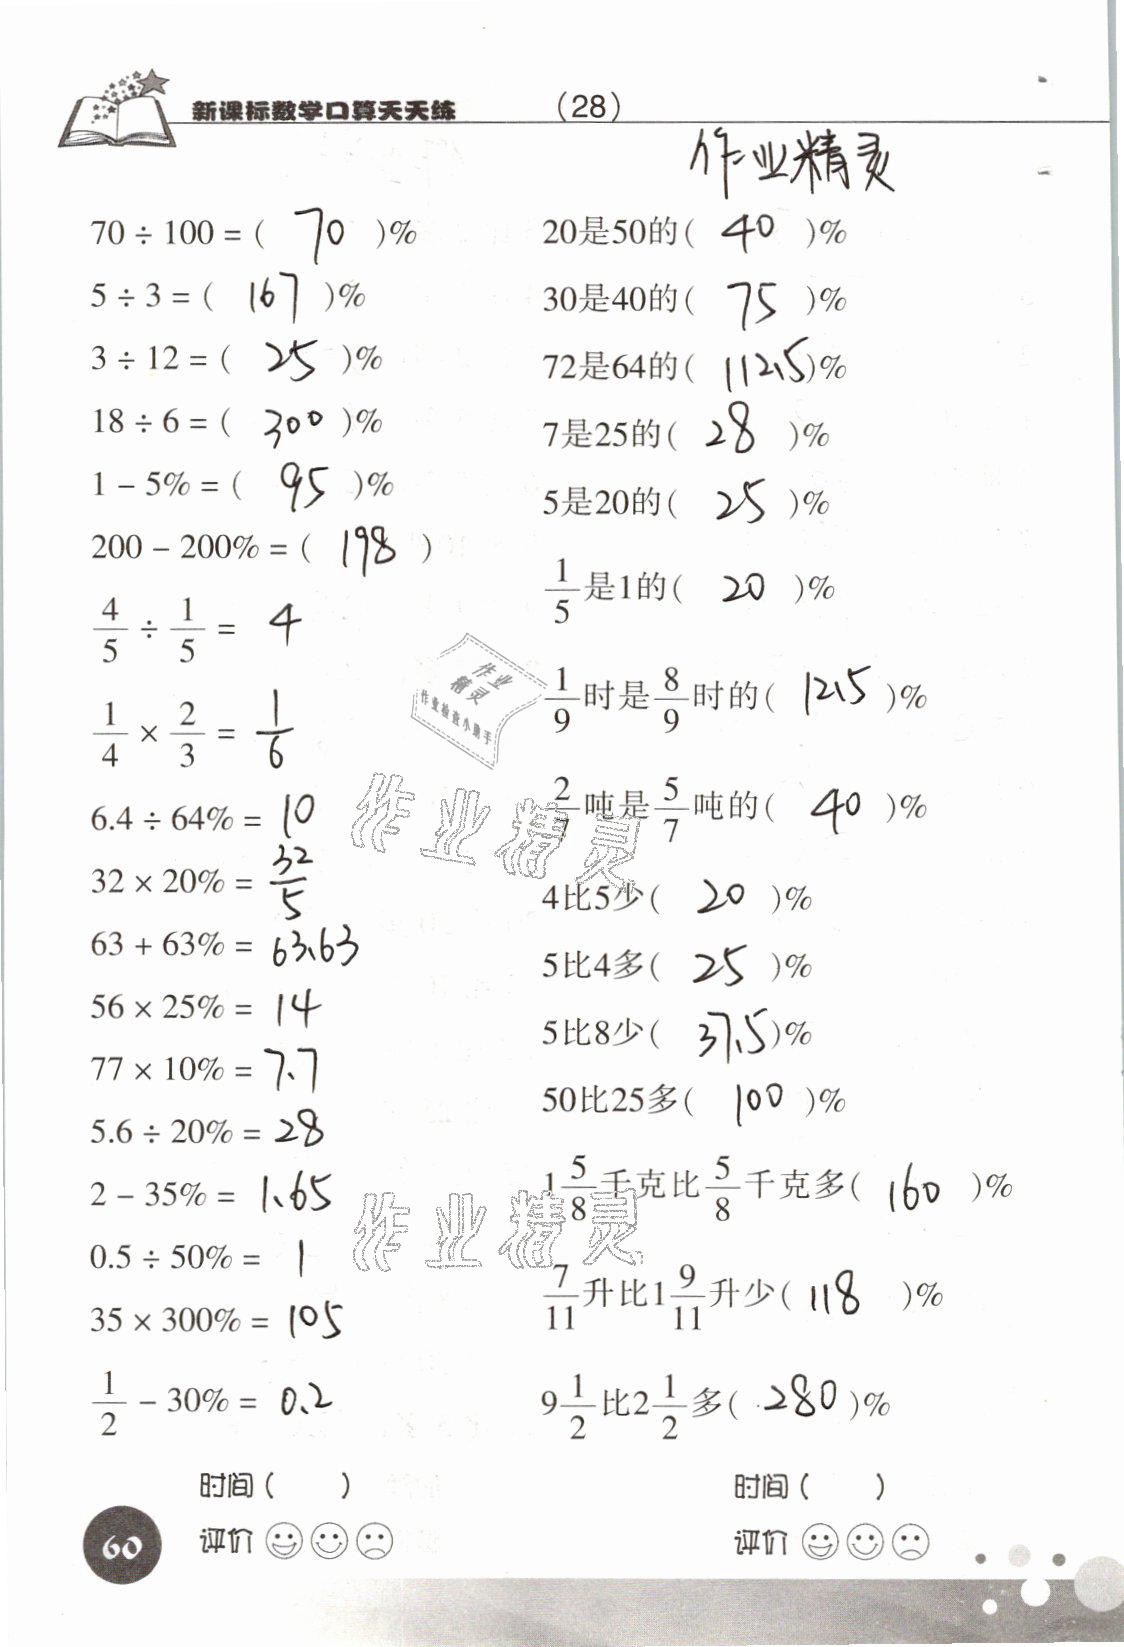 新课标数学口算天天练 (28)
作业精灵
70 ÷ 100 = ( 70 )%
5 ÷ 3 = ( 167 )%
3 ÷ 12 = ( 25 )%
18 ÷ 6 = ( 300 )%
1 − 5% = ( 95 )%
200 − 200% = ( 198 )
4/5 ÷ 1/5 = 4
1/4 × 2/3 = 1/6
6.4 ÷ 64% = 10
32 × 20% = 32/5
63 + 63% = 63.63
56 × 25% = 14
77 × 10% = 7.7
5.6 ÷ 20% = 28
2 − 35% = 1.65
0.5 ÷ 50% = 1
35 × 300% = 105
1/2 − 30% = 0.2
时间 ( )
评价
20是50的( 40 )%
30是40的( 75 )%
72是64的( 112.5 )%
7是25的( 28 )%
5是20的( 25 )%
1/5是1的( 20 )%
1/9时是8/9时的( 12.5 )%
2/7吨是5/7吨的( 40 )%
4比5少( 20 )%
5比4多( 25 )%
5比8少( 37.5 )%
50比25多( 100 )%
1 5/8千克比5/8千克多( 160 )%
7/11升比1 9/11升少( 118 )%
9 1/2比2 1/2多( 280 )%
时间 ( )
评价
60
作业
精灵
作业检查小助手
作业精灵
作业精灵